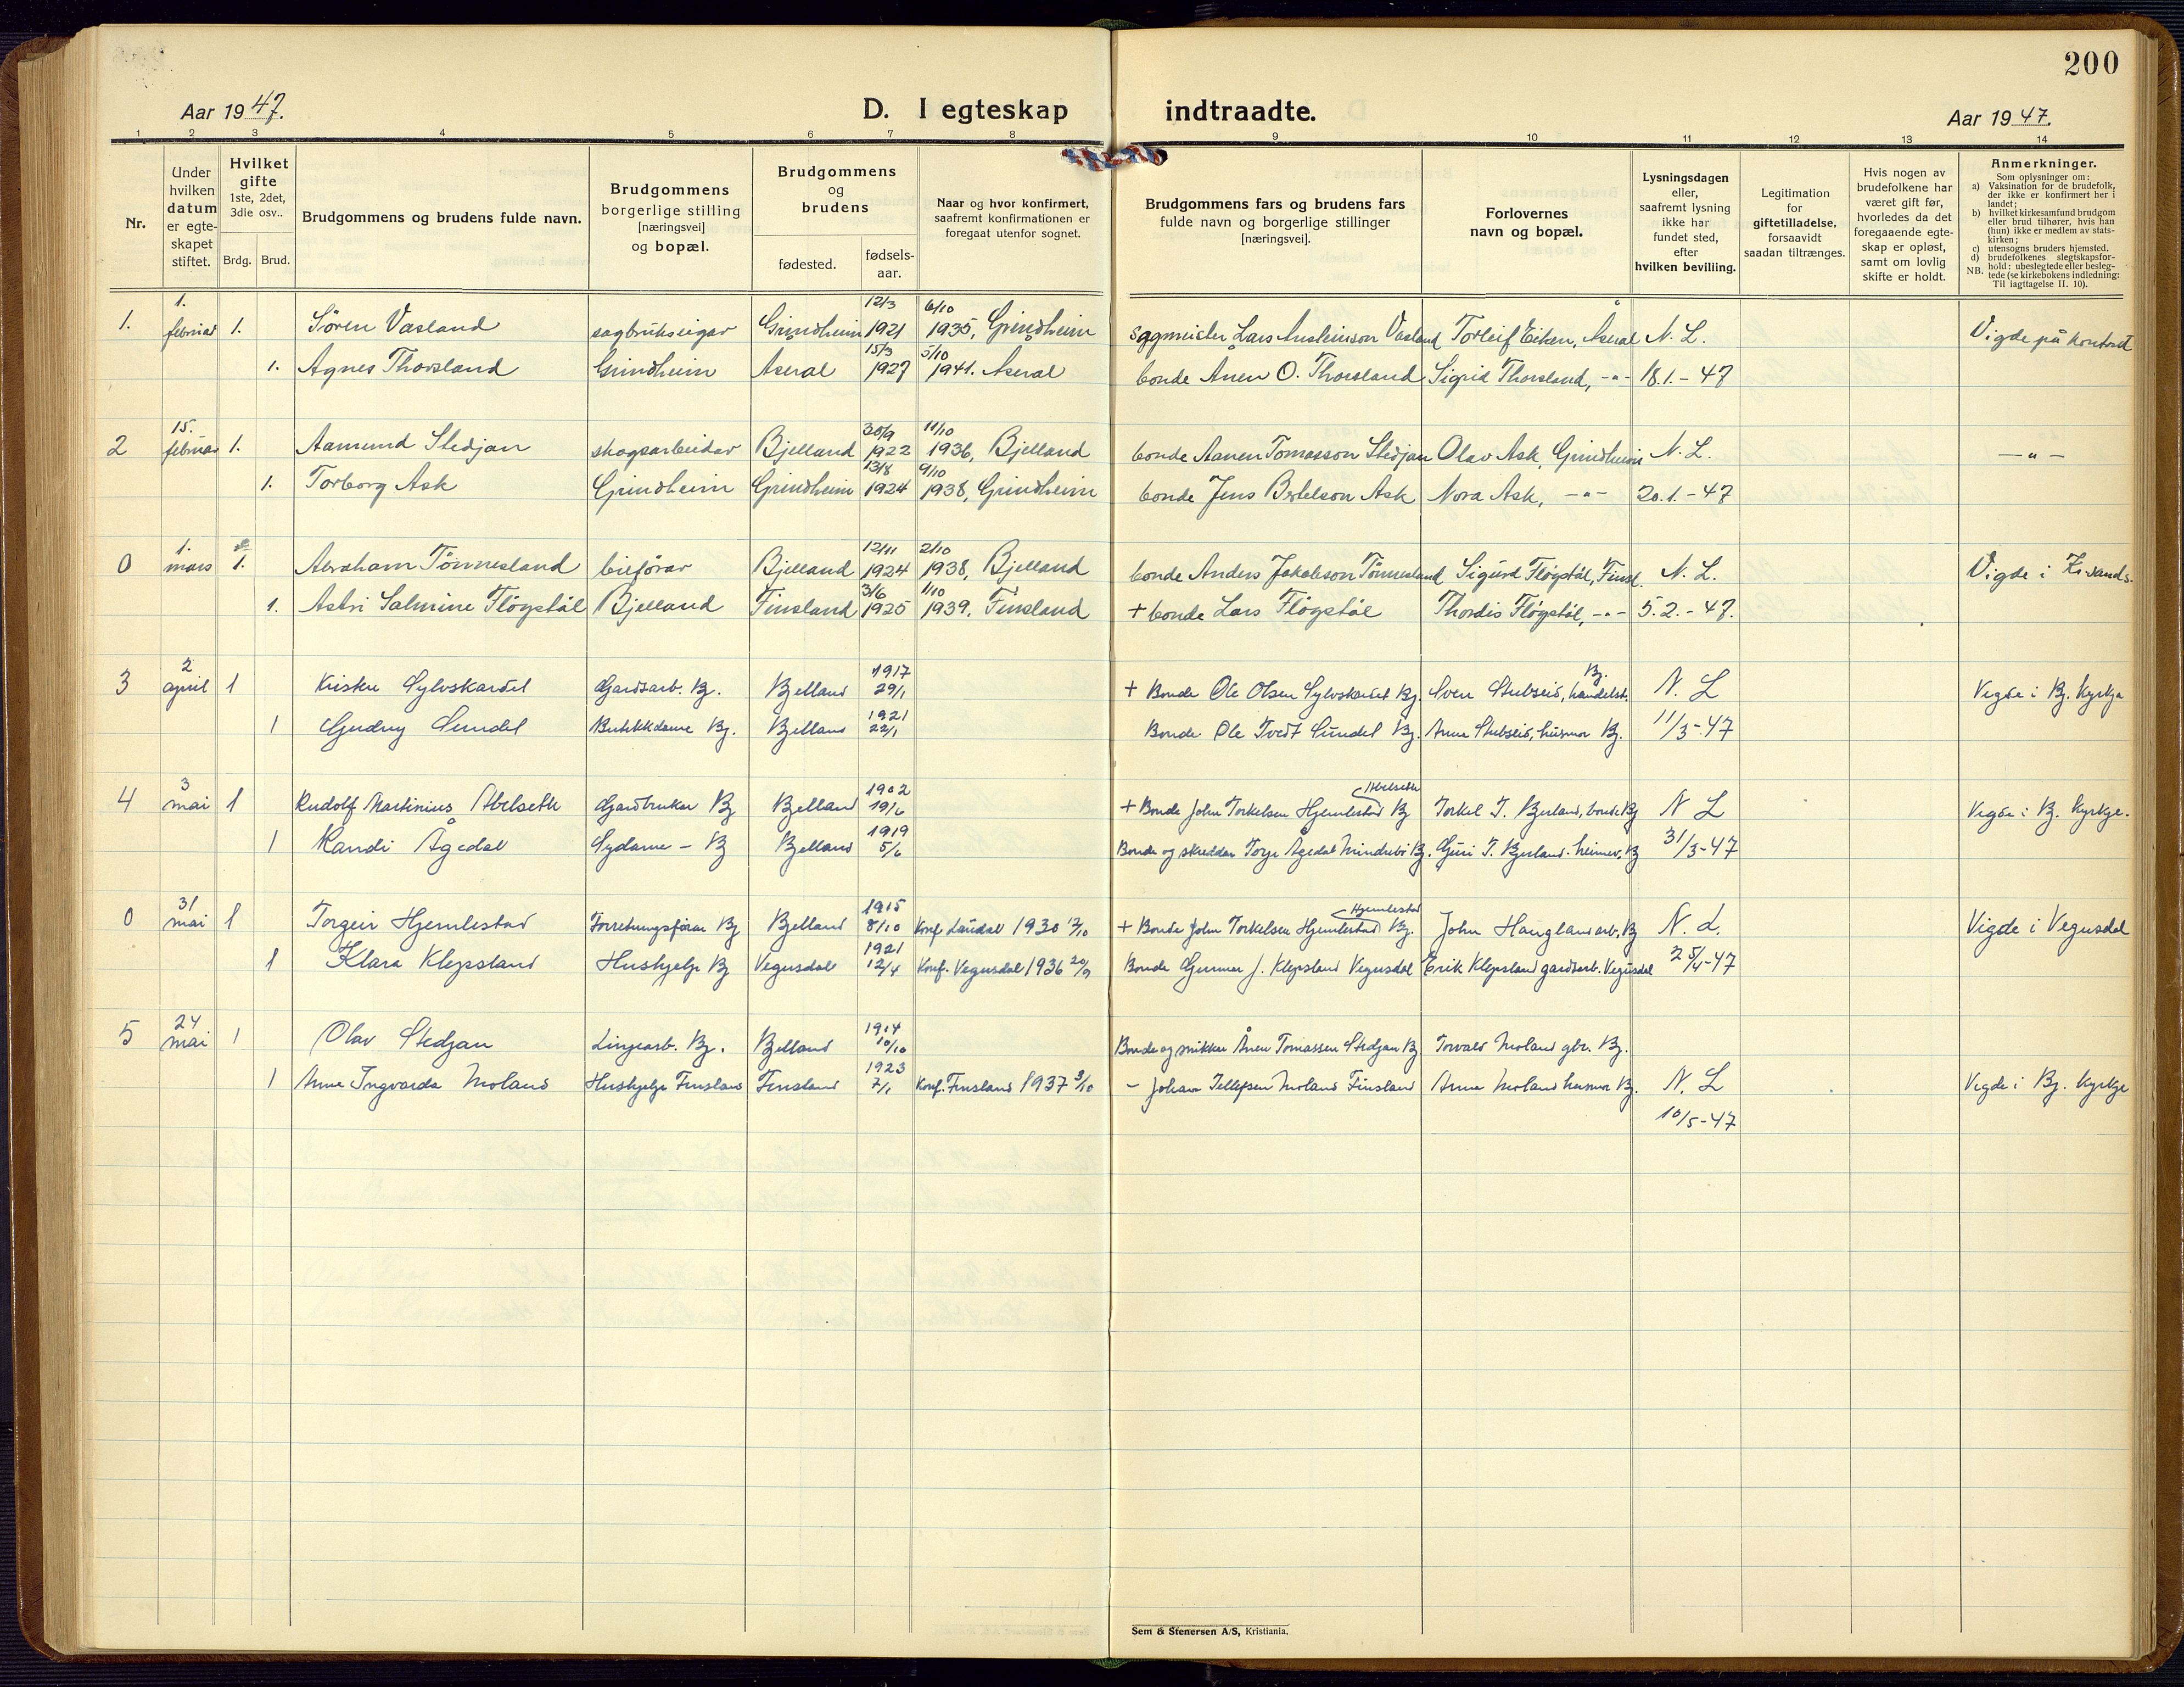 200
Aar 1947.
D. I egteskap indtraadte.
Aar 1947.
1 2 3 4 5 6 7 8 9 10 11 12 13 14
Nr.
Under hvilken datum er egte-skapet stiftet.
Hvilket gifte 1ste, 2det, 3die osv..
Brdg. Brud.
Brudgommens og brudens fulde navn.
Brudgommens borgerlige stilling [næringsvei] og bopæl.
Brudgommens og brudens
fødested.
fødsels-aar.
Naar og hvor konfirmert, saafremt konfirmationen er foregaat utenfor sognet.
Brudgommens fars og brudens fars fulde navn og borgerlige stillinger [næringsvei].
Forlovernes navn og bopæl.
Lysningsdagen eller, saafremt lysning ikke har fundet sted, efter hvilken bevilling.
Legitimation for giftetilladelse, forsaavidt saadan tiltrænges.
Hvis nogen av brudefolkene har været gift før, hvorledes da det foregaaende egte-skap er opløst, samt om lovlig skifte er holdt.
Anmerkninger.
Som oplysninger om:
a) Vaksination for de brudefolk, der ikke er konfirmert her i landet;
b) hvilket kirkesamfund brudgom eller brud tilhører, hvis han (hun) ikke er medlem av stats-kirken;
c) utensogns bruders hjemsted.
d) brudefolkenes slegtskapsfor-hold: ubeslegtede eller besleg-
NB. tede (se kirkebokens indledning: Til iagttagelse II. 10).
1. 1. februar 1. Søren Vasland sagbrukseigar Grindheim 12/3 1921 6/10 1935, Grindheim sagmeister Lars Ansteinson Vasland Torleif Eiken, Åseral N. L. Vigde på kontoret
1. Agnes Thorsland Grindheim Åseral 15/3 1927 5/10 1941. Åseral bonde Anen O. Thorsland Sigrid Thorsland, -"- 18.1.-47
2 15. februar 1. Aamund Stedjan skogsarbeidar Bjelland 30/9 1922 11/10 1936, Bjelland bonde Aanen Tomasson Stedjan Olav Ask, Grindheim N. L. -"-
1. Torborg Ask Grindheim Grindheim 13/8 1924 9/10 1938, Grindheim bonde Jens Bertelson Ask Nora Ask, -"- 20.1.-47
0 1. mars 1. Abraham Tønnesland bilførar Bjelland 12/11 1924 2/10 1938, Bjelland bonde Anders Jakobson Tønnesland Sigurd Fløgstøl, Finsl. N. L. Vigde i Kr.sand S.
1. Astri Salmine Fløgstøl Bjelland Finsland 3/6 1925 1/10 1939, Finsland + bonde Lars Fløgstøl Thordis Fløgstøl, -"- 5.2.-47.
3 2 april 1 Kristen Sylvskardet Gardsarb. Bj. Bjelland 1917 29/1 + Bonde Ole Olsen Sylvskardet Bj. Sven Stubseid, handelsb. Bj. N. L Vigde i Bj. kyrkja
1 Gudny Sundet Butikkdame Bj. Bjelland 1921 22/1 Bonde Ole Tvedt Sundet Bj. Anna Stubseid, husmor Bj. 11/3-47
4 3 mai 1 Rudolf Martinius Abelseth Gardbruker Bj Bjelland 1902 19/6 + Bonde John Torkelsen Hjemlestad Abelseth Bj Torkel T. Bjerland, bonde Bj N L Vigde i Bj. kyrkje.
1 Randi Ågedal Sydame - Bj Bjelland 1919 5/6 Bonde og skreddar Torje Ågedal Mindrebø Bj. Guri T. Bjerland. heimev, Bj 31/3-47
0 31 mai 1 Torgeir Hjemlestad Forretningsfører Bj Bjelland 1915 8/10 Konf Laudal 1930 12/10 + Bonde John Torkelsen Hjemlestad Hjemlestad Bj. John Haugland arb. Bj N. L. Vigde i Vegusdal
1 Klara Klepsland Hushjelp Bj Vegusdal 1921 12/4 Konf. Vegusdal 1936 20/9 Bonde Gunnar J. Klepsland Vegusdal Erik Klepsland gardsarb. Vegusdal 25/4-47
5 24 mai 1 Olav Stedjan Linjearb. Bj. Bjelland 1914 10/10 Bonde og snikkar Ånen Tomassen Stedjan Bj Torvald Moland gbr. Bj.
1 Anna Ingvarda Moland Hushjelp Finsland Finsland 1923 7/1 Konf. Finsland 1937 3/10 - Johan Tellefsen Moland Finsland Anna Moland husmor Bj. N. L Vigde i Bj. kyrkje
10/5-47
Sem & Stenersen A/S, Kristiania.